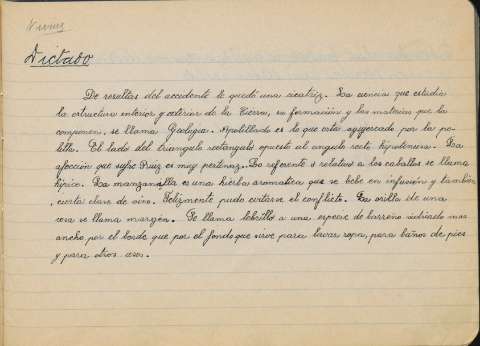 Viernes
Dictado
De resultas del accidente le quedó una cicatriz. La ciencia que estudia
la estructura interior y exterior de la Tierra, su formación y las materias que la
componen, se llama Geología. Apolillado es lo que está agujereado por la po-
lilla. El lado del triangulo rectangulo opuesto al angulo recto hipotenusa. La
afección que sufre Ruiz es muy pertinaz. Lo referente o relativo a los caballos se llama
hípico. La manzanilla es una hierba aromatica que se bebe en infusión y tambien
cierta clase de vino. Felizmente pudo evitarse el conflicto. La orilla de una
cosa se llama margén. Se llama lebrillo a una especie de barreño vidriado mas
ancho por el borde que por el fondo que sirve para lavar ropa, para baños de pies
y para otros usos.